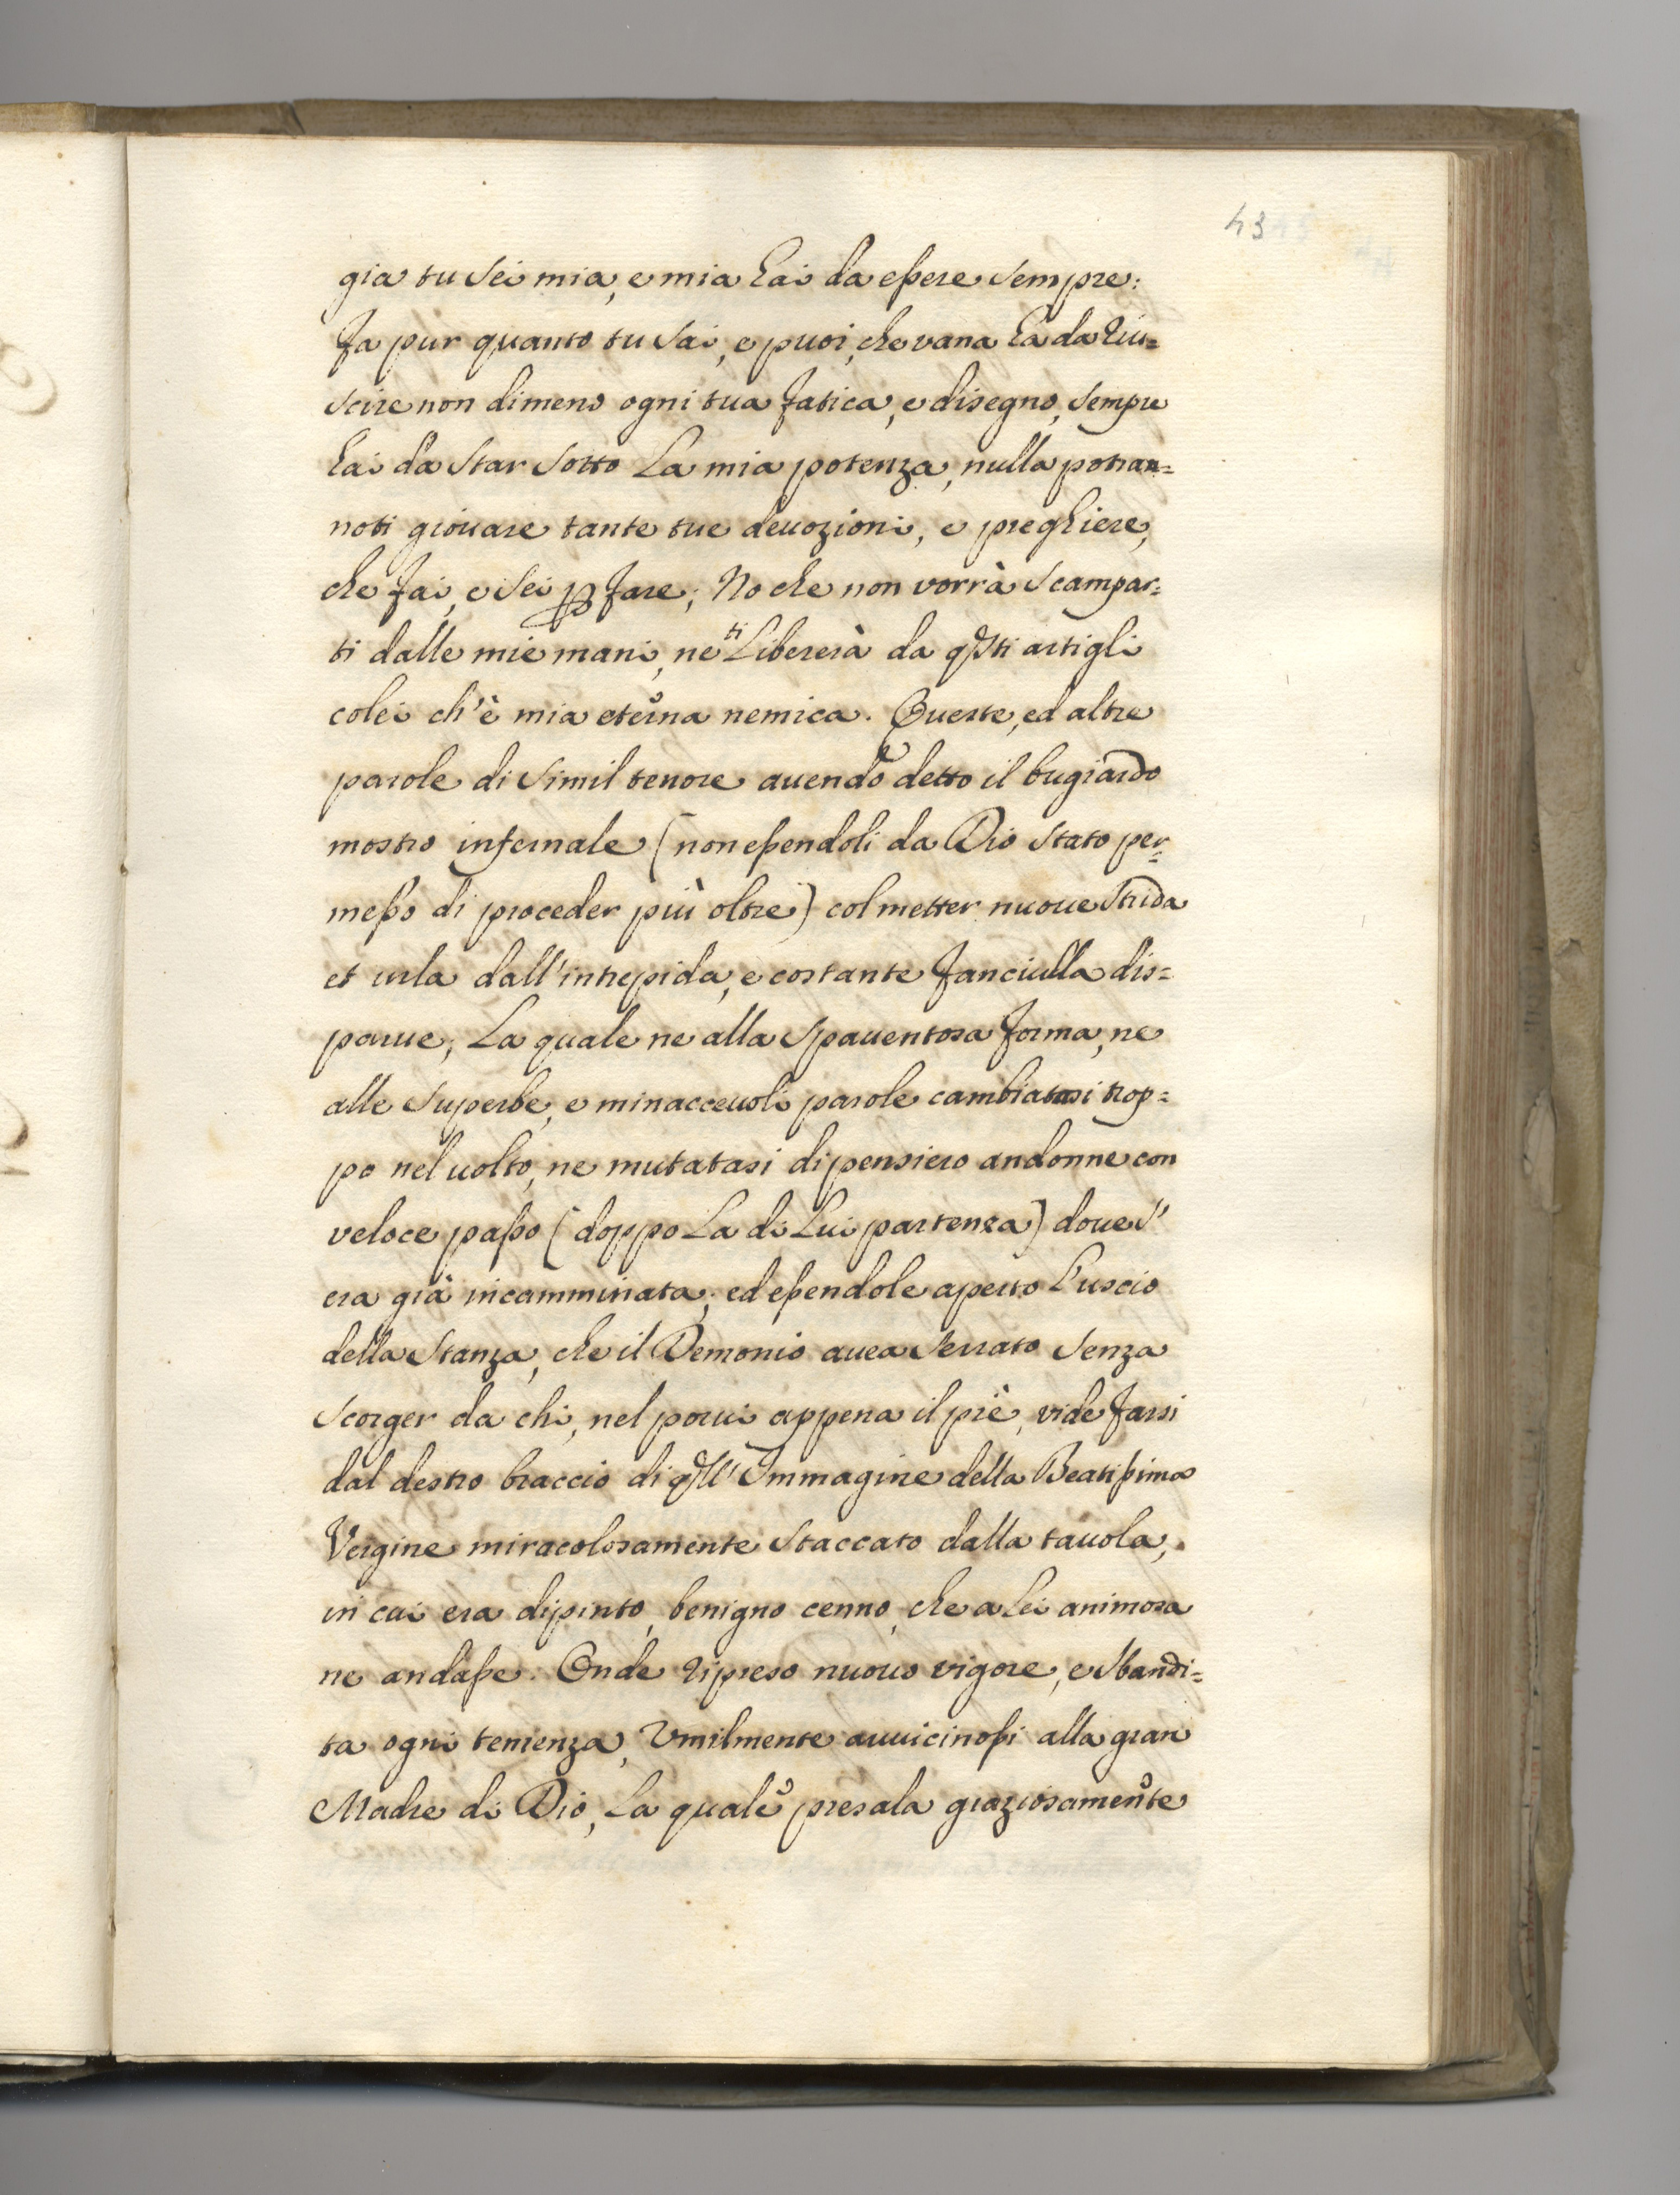 43
gia tu sei mia, e mia hai da eßere sempre:
fa pur quanto tu sai, e puoi, che vana ha da riu=
scire non dimeno ogni tua fatica, e disegno, sempre
hai da star sotto la mia potenza, nulla potran=
noti giouare tante tue deuozioni, e preghiere,
che fai, e sei p fare; No che non vorrà scampar=
ti dalle mie mani, ne ti libererà da qsti artigli
colei ch'è mia eterna nemica. Queste, ed altre
parole di simil tenore auendo detto il bugiardo
mostro infernale (non eßendoli da Dio stato per=
meßo di proceder più oltre) col metter nuoue strida
et urla dall'intrepida, e costante fanciulla dis=
parue; La quale ne alla spauentosa forma, ne
alle superbe, e minacceuoli parole cambiatasi trop=
po nel uolto, ne mutatasi di pensiero andonne con
veloce paßo (doppo la di lui partenza) doue s'
era già incamminata; ed eßendole aperto l'uscio
della stanza, che il Demonio auea serrato senza
scorger da chi, nel porui appena il piè, vide farsi
dal destro braccio di qll' Immagine della Beatißima
Vergine miracolosamente staccato dalla tauola,
in cui era dipinto, benigno cenno, che a lei animosa
ne andaße. Onde ripreso nuouo vigore, e sbandi=
ta ogni temenza, Vmilmente auuicinoßi alla gran
Madre di Dio, la quale presala graziosamente